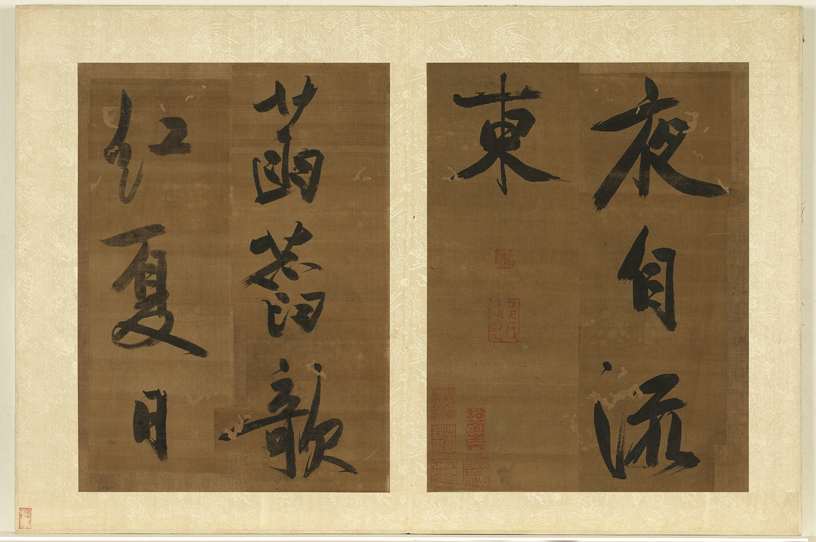 夜自流
東
菡萏歌
紅夏日